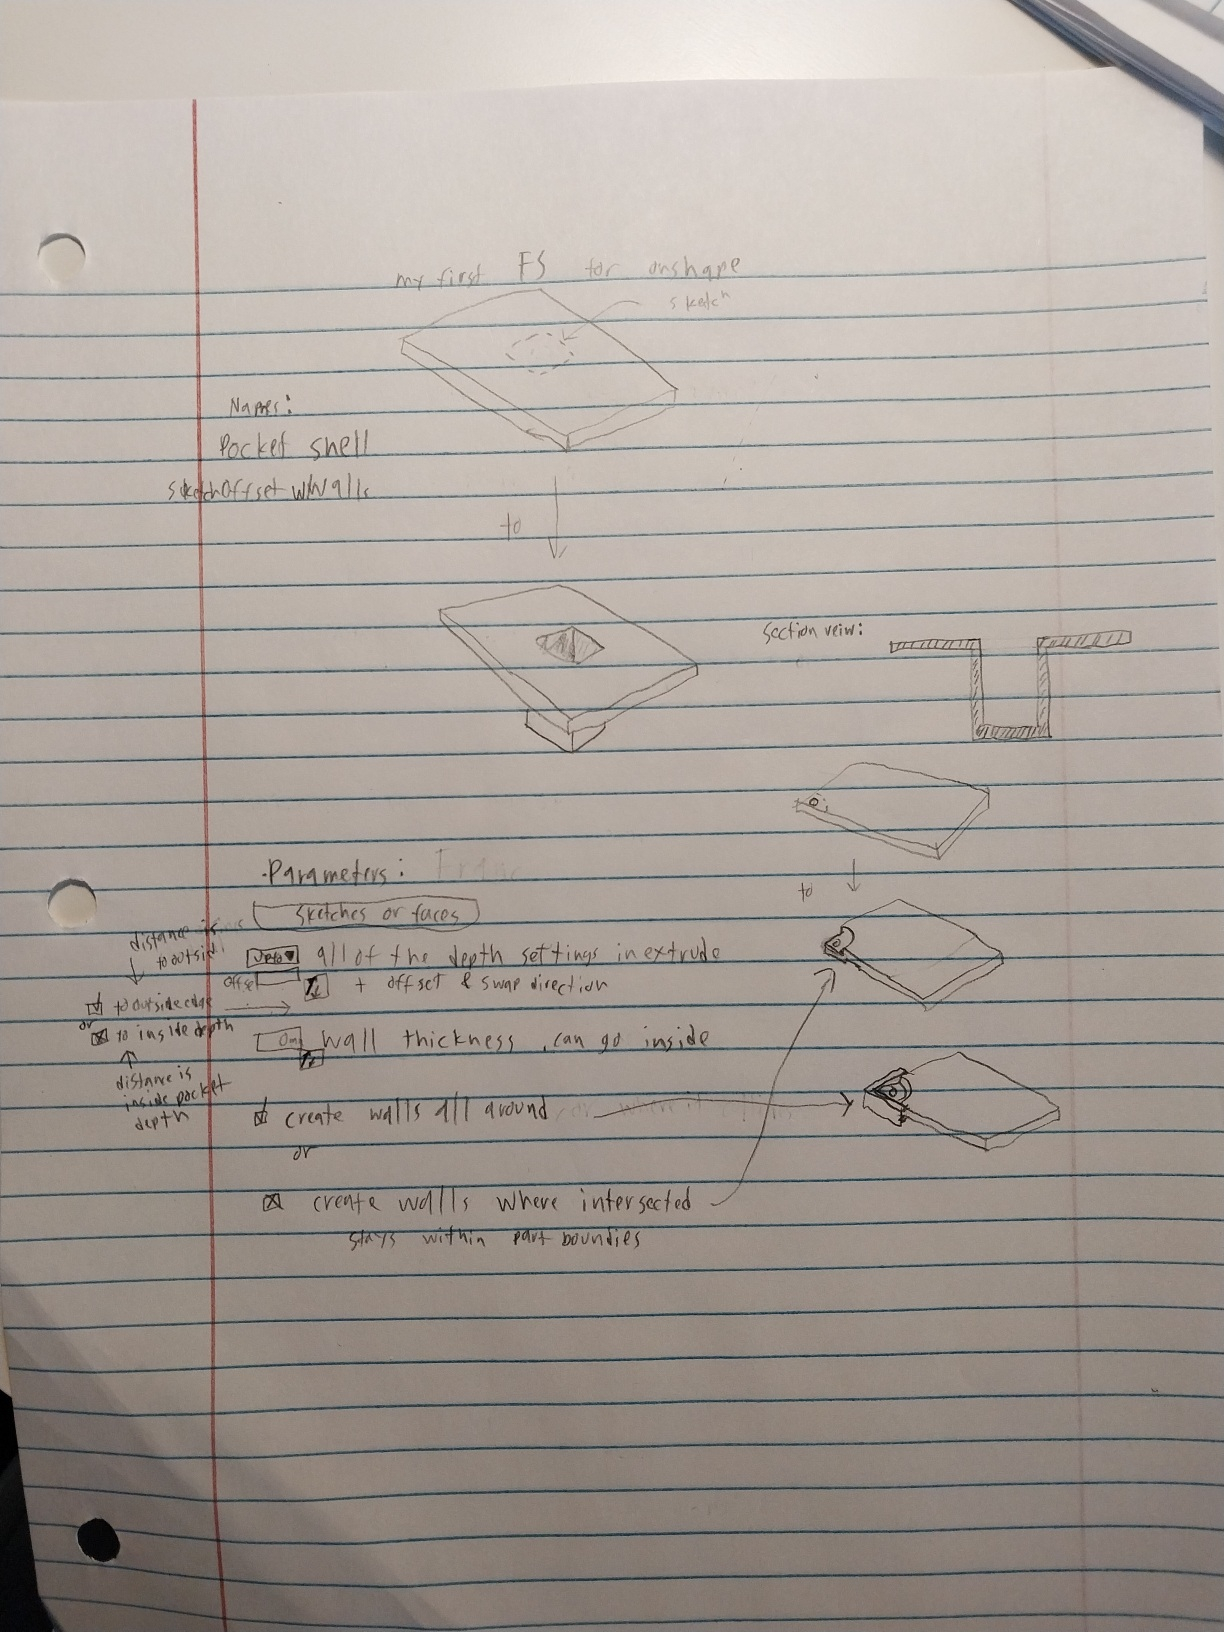 my first FS for onshape
sketch
Names:
Pocket shell
sketchOffset w/Walls
to
section veiw:
Parameters:
sketches or faces
to
distance is
to outside
Upto all of the depth settings in extrude
Offset + offset & swap direction
to outside edge
or
to inside depth
wall thickness, can go inside
distance is
inside pocket
depth
create walls all around
or
create walls where intersected
stays within part boundies